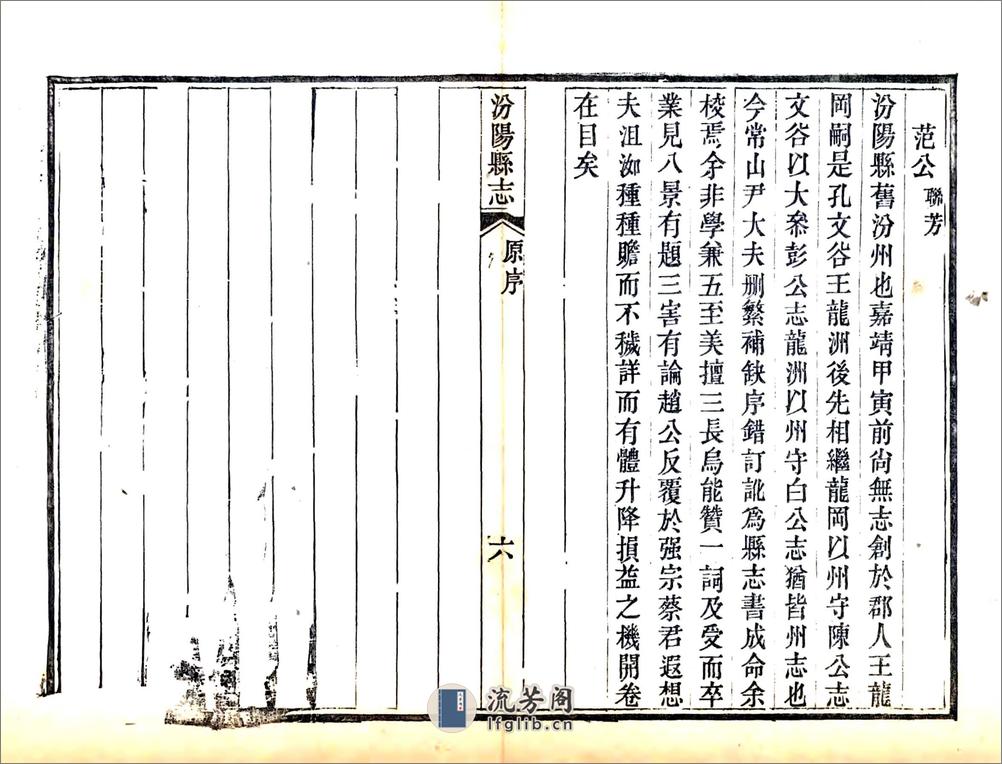 范公聯芳
汾陽縣舊汾州也嘉靖甲寅前尚無志創於郡人王龍
岡嗣是孔文谷王龍洲後先相繼龍岡以州守陳公志
文谷以大叅彭公志龍洲以州守白公志猶皆州志也
今常山尹大夫刪繁補缺序錯訂訛爲縣志書成命余
校焉余非學兼五至美擅三長烏能贊一詞及受而卒
業見八景有題三害有論趙公反覆於强宗蔡君遐想
夫沮洳種種贍而不穢詳而有體升降損益之機開卷
在目矣
汾陽縣志
原序
六
流芳阁
lfglib.cn